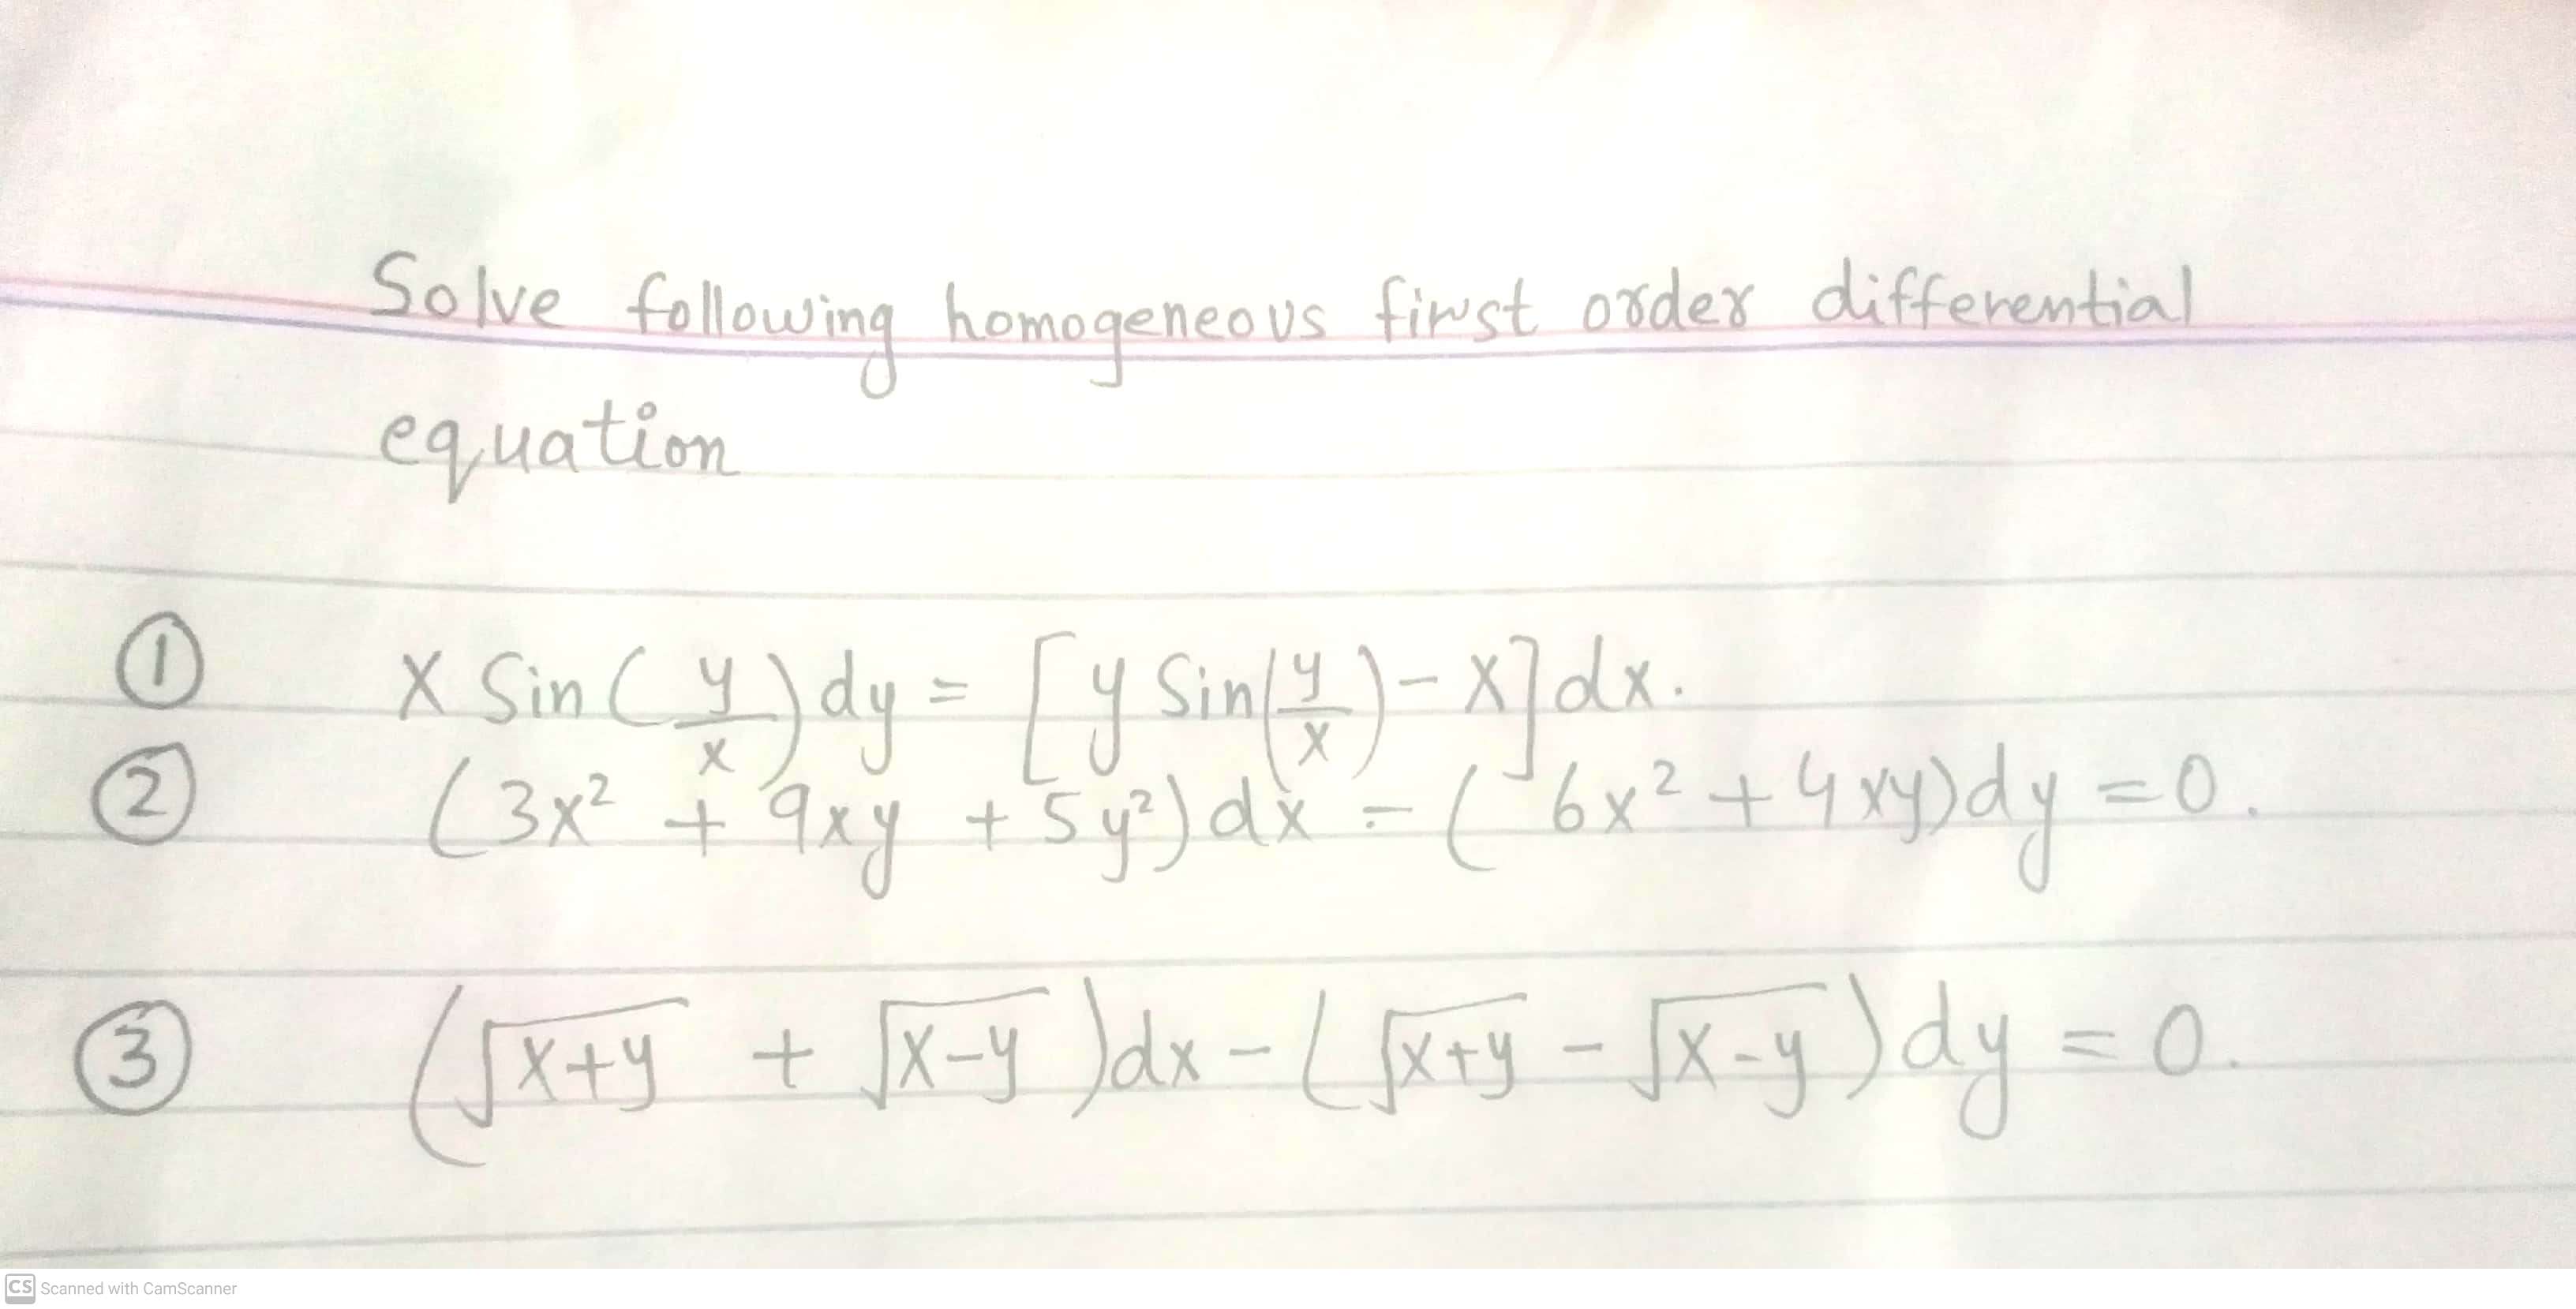 Solve following homogeneous first order differential
equation
① x Sin(y/x)dy = [y Sin(y/x) - x]dx.
② (3x² + 9xy + 5y²)dx - (6x² + 4xy)dy = 0.
③ (√x+y + √x-y)dx - (√x+y - √x-y)dy = 0.
CS Scanned with CamScanner